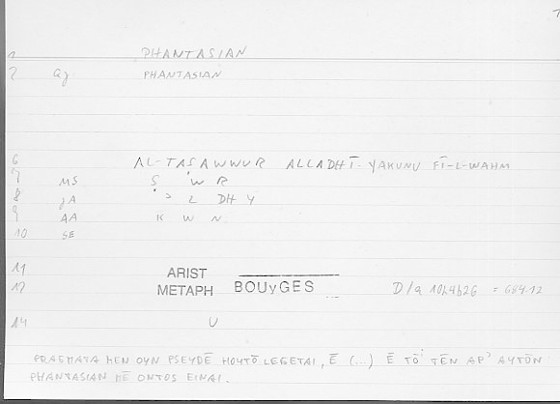 1 PHANTASIAN
2 qj PHANTASIAN
6 AL-TASAWWUR ALLADHĪ YAKUNU FĪ-L-WAHM
7 MS S W R
8 JA ʾ L DH Y
9 AA K W N
10 SE
11 ARIST
12 METAPH BOUyGES D/a 1024b26 = 684.12
14 U
PRAGMATA MEN OYN PSEYDĒ HOYTŌ LEGETAI, Ē (...) Ē TŌⁱ TĒN APʾ AYTŌN
PHANTASIAN MĒ ONTOS EINAI.